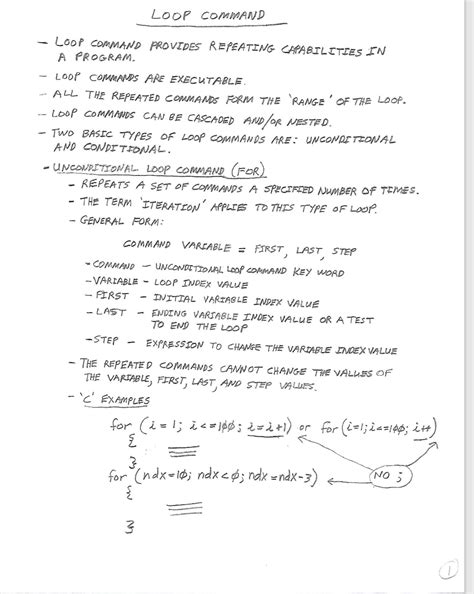 LOOP COMMAND
- LOOP COMMAND PROVIDES REPEATING CAPABILITIES IN
A PROGRAM.
- LOOP COMMANDS ARE EXECUTABLE.
- ALL THE REPEATED COMMANDS FORM THE 'RANGE' OF THE LOOP.
- LOOP COMMANDS CAN BE CASCADED AND/OR NESTED.
- TWO BASIC TYPES OF LOOP COMMANDS ARE: UNCONDITIONAL
AND CONDITIONAL.
- UNCONDITIONAL LOOP COMMAND (FOR)
- REPEATS A SET OF COMMANDS A SPECIFIED NUMBER OF TIMES.
- THE TERM 'ITERATION' APPLIES TO THIS TYPE OF LOOP.
- GENERAL FORM:
COMMAND VARIABLE = FIRST, LAST, STEP
- COMMAND - UNCONDITIONAL LOOP COMMAND KEY WORD
- VARIABLE - LOOP INDEX VALUE
- FIRST - INITIAL VARIABLE INDEX VALUE
- LAST - ENDING VARIABLE INDEX VALUE OR A TEST
TO END THE LOOP
- STEP - EXPRESSION TO CHANGE THE VARIABLE INDEX VALUE
- THE REPEATED COMMANDS CANNOT CHANGE THE VALUES OF
THE VARIABLE, FIRST, LAST, AND STEP VALUES.
- 'C' EXAMPLES
for (i=1; i<=1øø; i=i+1) or for (i=1; i<=1øø; i++)
{
}
for (ndx=1ø; ndx<ø; ndx=ndx-3) NO ;
{
}
1